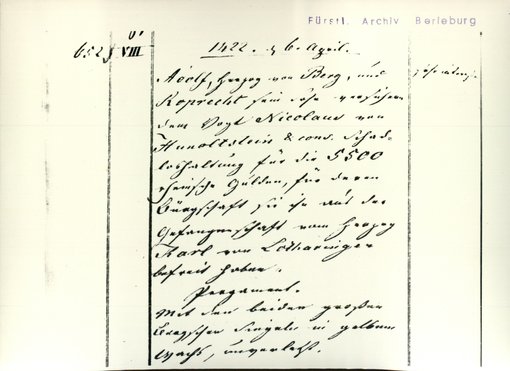 Fürstl. Archiv Berleburg
652 VIII
1422. d. 6. April.
Adolf, Herzog von Berg, und
Ruprecht sein Sohn versichern
dem Vogt Nicolaus von
Hunoltstein & cons. Schad-
loshaltung für die 5500
rheinische Gulden, für deren
Bürgschaft sie ihn aus der
Gefangenschaft vom Herzog
Karl von Lotharingen
befreit haben.
Pergament.
Mit den beiden großen
Bergschen Siegeln in gelbem
Wachs, unverletzt.